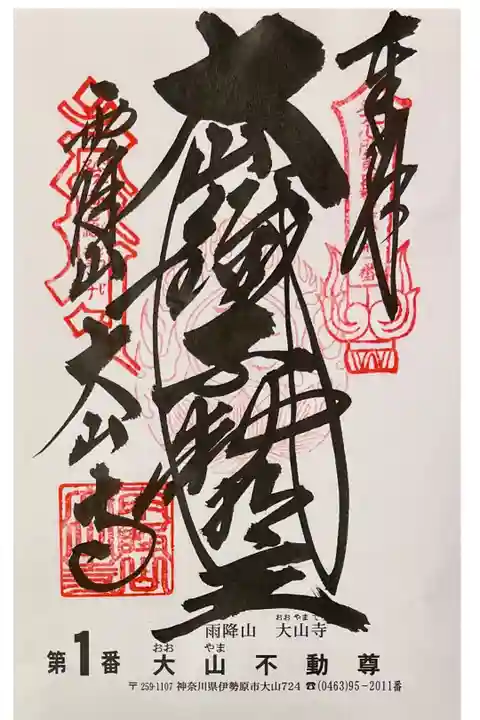 奉拝
大山鐵不動明王
雨降山
大山寺
雨降山 大山寺
おおやま
第1番 大山不動尊
おお やま
〒259-1107 神奈川県伊勢原市大山724 ☎(0463)95-2011番